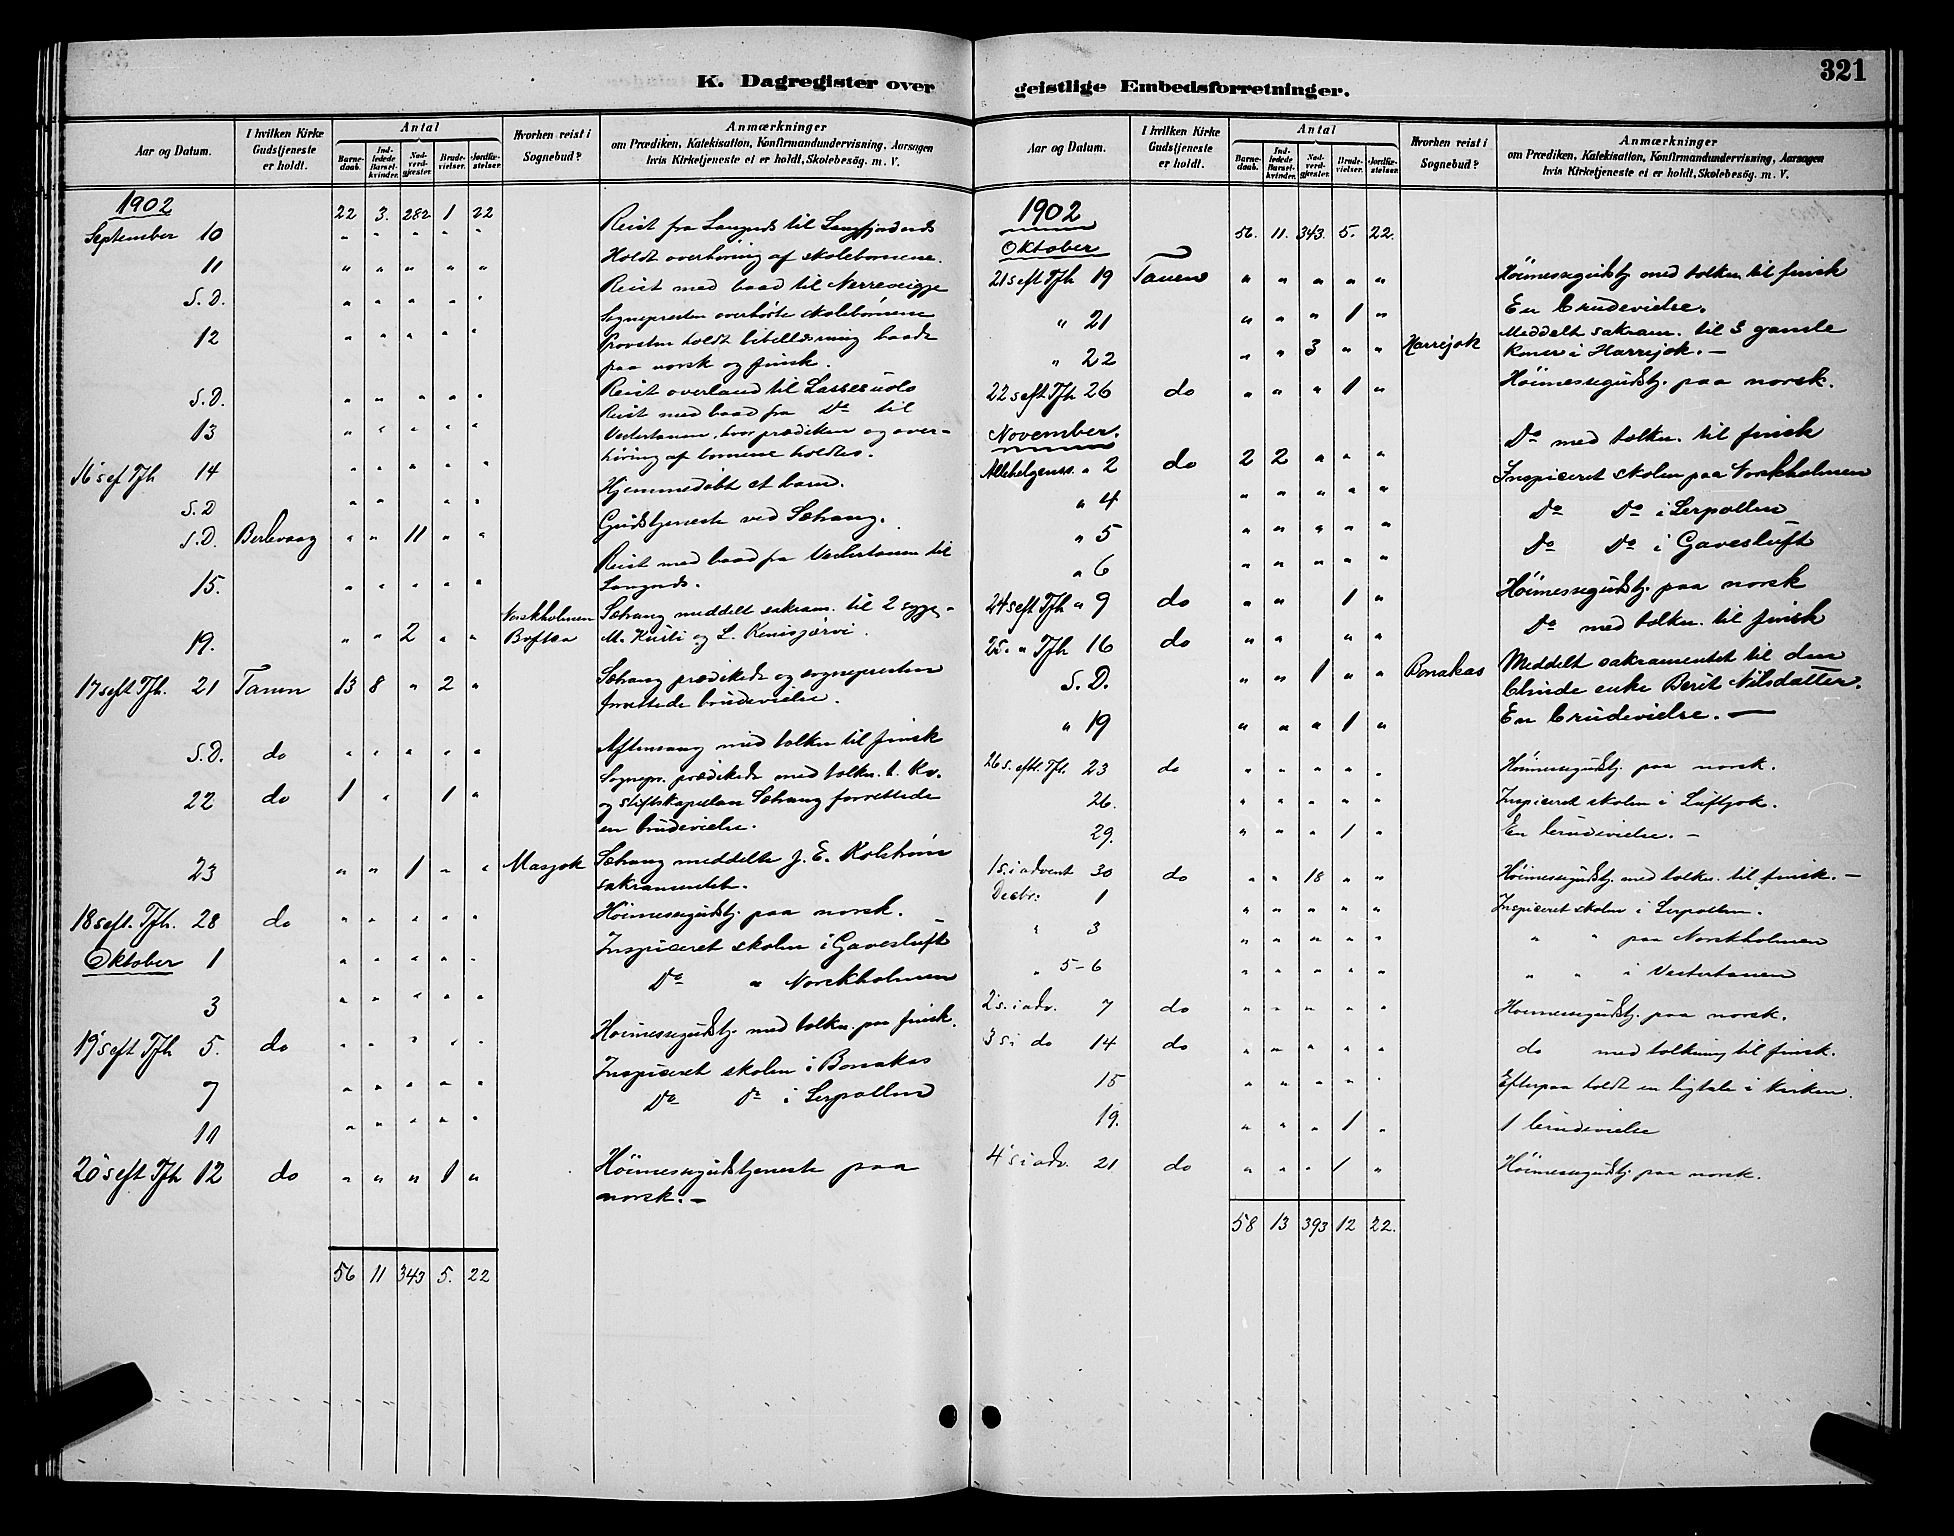 K. Dagregister over
Aar og Datum.
I hvilken Kirke Gudstjeneste er holdt.
Antal
Barnedaab.
Indledede Barselkvinder.
Nadverdgjester.
Brudevielser.
Jordfæstelser.
Hvorhen reist i Sognebud?
Anmærkninger
om Prædiken, Katekisation, Konfirmandundervisning, Aarsagen
hvis Kirketjeneste ei er holdt, Skolebesög. m. V.
1902 22 3. 282 1 22
September 10 " " " " " Reist fra Langnes til Langfjordnes
11 " " " " " Holdt overhöring af skolebørnene.
S. D. " " " " " Reist med baad til
12 " " " " " Sognepresten overhørte skolebørnene
Provsten holdt bibellæsning baade
paa norsk og finsk.
S. D. " " " " " Reist overland til
13 " " " " " Reist med baad fra Do til
Vestertanen, hvor prædiken og over-
höring af börnene holdtes.
16 s ef Tfh 14 " " " " " Hjemmedøbt et barn.
S. D " " " " " Gudstjeneste ved
S. D. Berlevaag " " 11 " "
15. " " " " " Reist med baad fra Vestertanen til
Langnes.
19. " " 2 " " Norskholmen Boftsa meddelt sakram. til 2 syge,-
M. og L.
17 s eft Tfh. 21 Tanen 13 8 " 2 " prædikede og sognepresten
forrettede brudevielse.
S. D. do " " " " " Aftensang med tolkn til finsk
22 do 1 " 1 " Sognepr. prædikede med tolkn. t. Kv.
og stiftskapelan forrettede
en brudevielse.
23 " " 1 " " Masjok meddelte J. E.
sakramentet.
18 s eft. Tfh. 28 do " " " " " Höimessegudstj. paa norsk.
Oktober 1 " " " " " Inspiceret skolen i Gavesluft
3 " " " " " Do " Norskholmen
19 s eft Tfh 5. do " " " " " Höimessegudstj. med tolkn. paa finsk.
7 " " " " " Inspiceret skolen i Bonakas
11 " " " " " Do Do i Serpollen
20 s eft Tfh 12 do " " " 1 " Höimessegudstjeneste paa
norsk. -
56 11 343 5. 22
geistlige Embedsforretninger.
321
Aar og Datum.
I hvilken Kirke Gudstjeneste er holdt.
Antal
Barnedaab.
Indledede Barselkvinder.
Nadverdgjester.
Brudevielser.
Jordfæstelser.
Hvorhen reist i Sognebud?
Anmærkninger
om Prædiken, Katekisation, Konfirmandundervisning, Aarsagen
hvis Kirketjeneste ei er holdt, Skolebesög. m. V.
1902 56. 11. 343. 5. 22.
Oktober
21 s eft Tfh 19 Tanen " " " " " Höimessegudstj med tolkn til finsk
" 21 " " " 1 " En brudevielse.
" 22 " " 3 " " Harrejok Meddelt sakram. til 3 gamle
koner i Harrejok. -
22 s eft Tfh 26 do " " " 1 " Höimessegudstj. paa norsk.
November.
Allehelgenss. " 2 do 2 2 " " " Do med tolkn. til finsk
" 4 " " " " " Inspiceret skolen paa Norskholmen
" 5 " " " " " Do Do i Serpollen
" 6 " " " " " Do Do i Gavesluft
24 s eft Tfh " 9 do " " 1 " Höimessegudstj. paa norsk
25. " Tfh 16 do " " " " Do med tolkn. til finsk
S. D. " " 1 " " Bonakas Meddelt sakramentet til den
blinde enke Berit Nilsdatter.
" 19 " " " 1 " En brudevielse. -
26 s. eft. Tfh. 23 do " " " " " Höimessegudstj. paa norsk.
26. " " " " " Inspiceret skolen i Luftjok.
29. " " " 1 " En brudevielse. -
1 s. i advent 30 do " " 18 " " Höimessegudstj. med tolkn. til finsk. -
Decbr: 1 " " " " " Inspiceret skolen i Serpollen.
" 3 " " " " " " " paa Norskholmen
" 5-6 " " " " " " " i Vestertanen
2 s. i adv. 7 do " " " " " Höimessegudstj. paa norsk.
3 s i do 14 do " " " " " do med tolkning til finsk.
15 " " " " " Efterpaa holdt en ligtale i kirken.
19. " " " 1 " 1 brudevielse
4 s i adv. 21 do " " " 1 " Höimessegudstj. paa norsk.
58 13 393 12 22.